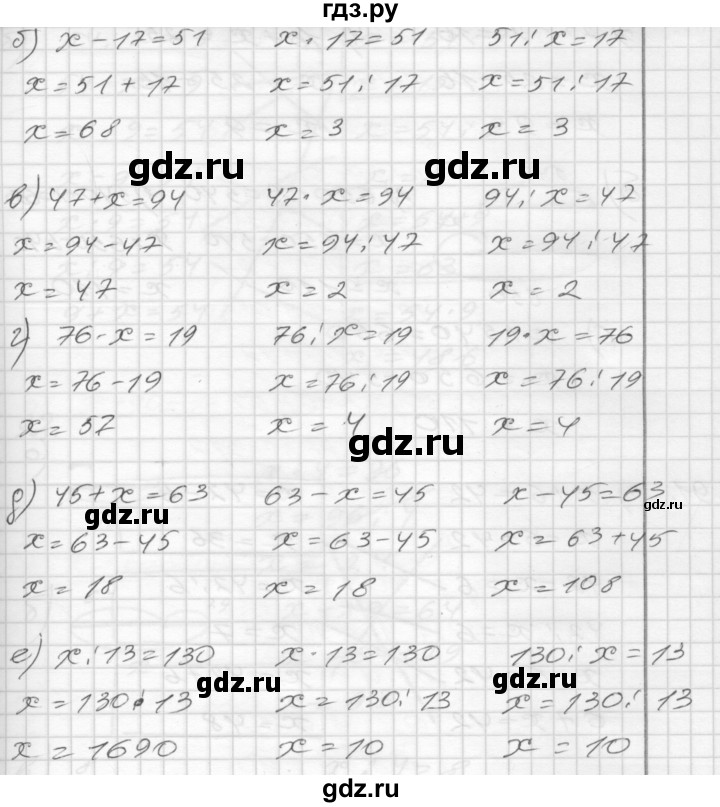 гдз.ру
б) x - 17 = 51 x · 17 = 51 51 : x = 17
x = 51 + 17 x = 51 : 17 x = 51 : 17
x = 68 x = 3 x = 3
gdz.ru gdz.ru
в) 47 + x = 94 47 · x = 94 94 : x = 47
x = 94 - 47 x = 94 : 47 x = 94 : 47
x = 47 x = 2 x = 2
г) 76 - x = 19 76 : x = 19 19 · x = 76
x = 76 - 19 x = 76 : 19 x = 76 : 19
x = 57 x = 4 x = 4
gdz.ru
д) 45 + x = 63 63 - x = 45 x - 45 = 63
gdz.ru gdz.ru
x = 63 - 45 x = 63 - 45 x = 63 + 45
x = 18 x = 18 x = 108
е) x : 13 = 130 x · 13 = 130 130 : x = 13
gdz.ru gdz.ru
x = 130 · 13 x = 130 : 13 x = 130 : 13
x = 1690 x = 10 x = 10
gdz.ru